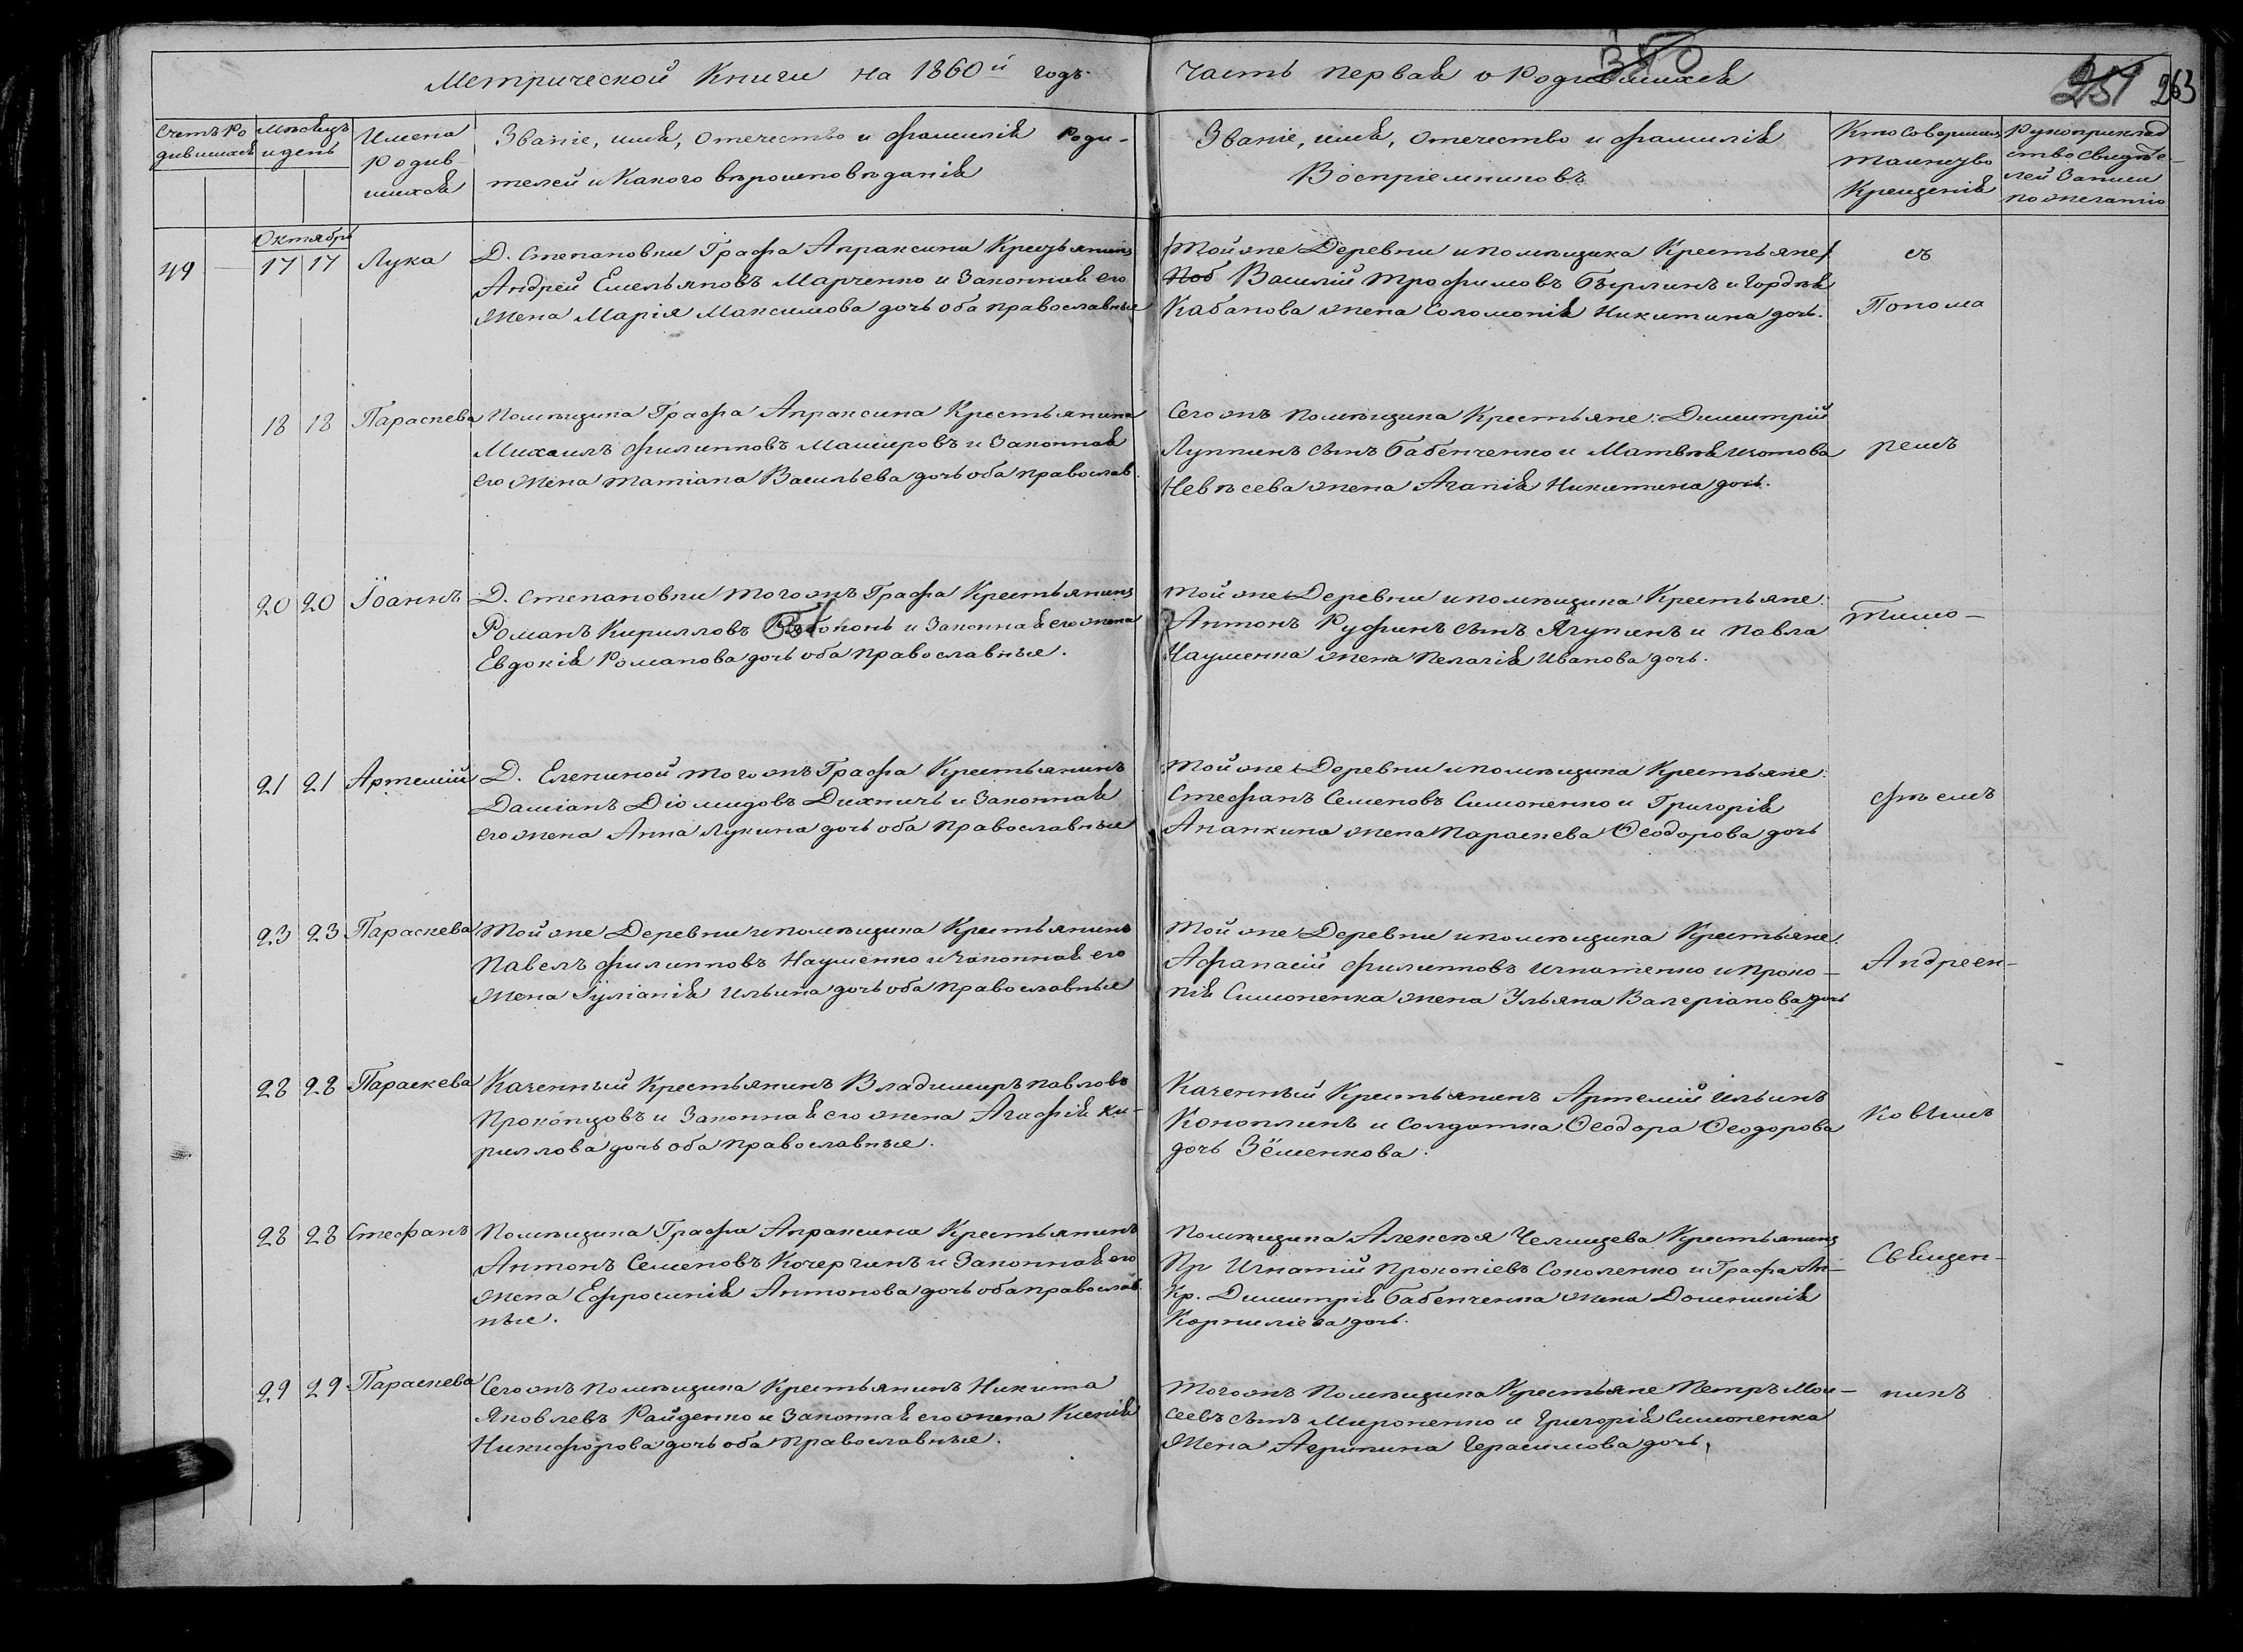 Метрической Книги на 1860й годъ.
Часть первая о Родившихся
263
Счетъ Ро
дившихся
Мѣсяцъ
и день
Имена
Родив-
шихся
Званіе, имя, отечество и фамилія Роди-
телей и Какого вѣроисповѣданія
Званіе, имя, отечество и фамилія
Воспріемниковъ
Кто Совершалъ
таинство
Крещенія
Рукоприклад
ство Свидѣте-
лей Записи
по желанію
Октябрь
49 17 17 Лука
Д. Степановки Графа Апраксина Крестьянинъ
Андрей Емельяновъ Марченко и Законная его
жена Марія Максимова дочь оба православные
Той же Деревни и помѣщика Крестьяне
Василій Трофимовъ Бырлинъ и Гордѣя
Кабанова жена Соломонія Никитина дочь.
съ
Понома
18 18 Параскева
Помѣщика Графа Апраксина Крестьянина
Михаилъ Филипповъ Машировъ и Законная
его жена Татіана Васильева дочь оба православ.
Сего жъ помѣщика Крестьяне: Димитрій
Луппинъ сынъ Бабенченко и Матвѣя Изотова
Невѣсева жена Агапія Никитина дочь.
ремъ
20 20 Іоаннъ
Д. Степановки того жъ Графа Крестьянинъ
Романъ Кирилловъ и Законная его жена
Евдокія Романова дочь оба православные.
Той же Деревни и помѣщика Крестьяне:
Антонъ Руфинъ сынъ Ягупинъ и Павла
Науменка жена Пелагія Иванова дочь.
Тимо-
21 21 Артемій
Д. Елениной того жъ Графа Крестьянинъ
Даміанъ Діомидовъ Дихничъ и Законная
его жена Анна Лукина дочь оба Православные
Той же Деревни и помѣщика Крестьяне:
Стефанъ Семеновъ Симоненко и Григорія
Ананкина жена Параскева Ѳеодорова дочь
фѣемъ
23 23 Параскева
Той же Деревни и помѣщика Крестьянинъ
Павелъ Филипповъ Науменко и Законная его
жена Іуліанія Ильина дочь оба православные
Той же Деревни и помѣщика Крестьяне:
Афанасій Филипповъ Игнатенко и Проко-
пія Симоненка жена Ульяна Валеріанова дочь
Андреен-
28 28 Параскева
Каченный Крестьянинъ Владимиръ Павловъ
Прокопцовъ и Законная его жена Агафія Ки-
риллова дочь оба православные.
Каченный Крестьянинъ Артемій Ильинъ
Коноплинъ и Солдатка Ѳеодора Ѳеодорова
дочь Зёменкова.
ковымъ
28 28 Стефанъ
Помѣщика Графа Апраксина Крестьянинъ
Антонъ Семеновъ Кочергинъ и Законная его
жена Ефросинія Антонова дочь оба православ.
ные.
Помѣщика Алексѣя Челищева Крестьянинъ
Игнатій Прокопіевъ Соколенко и Графа Ап-
Кр. Димитрія Бабенченка жена Доменикія
Корниліева дочь.
Священ-
29 29 Параскева
Сего жъ помѣщика Крестьянинъ Никита
Яковлевъ Райденко и Законная его жена Ксенія
Никифорова дочь оба Православные.
Того жъ Помѣщика Крестьяне Петръ Мои-
сеевъ сынъ Мироненко и Григорія Симоненка
жена Агрипина Герасимова дочь,
никъ